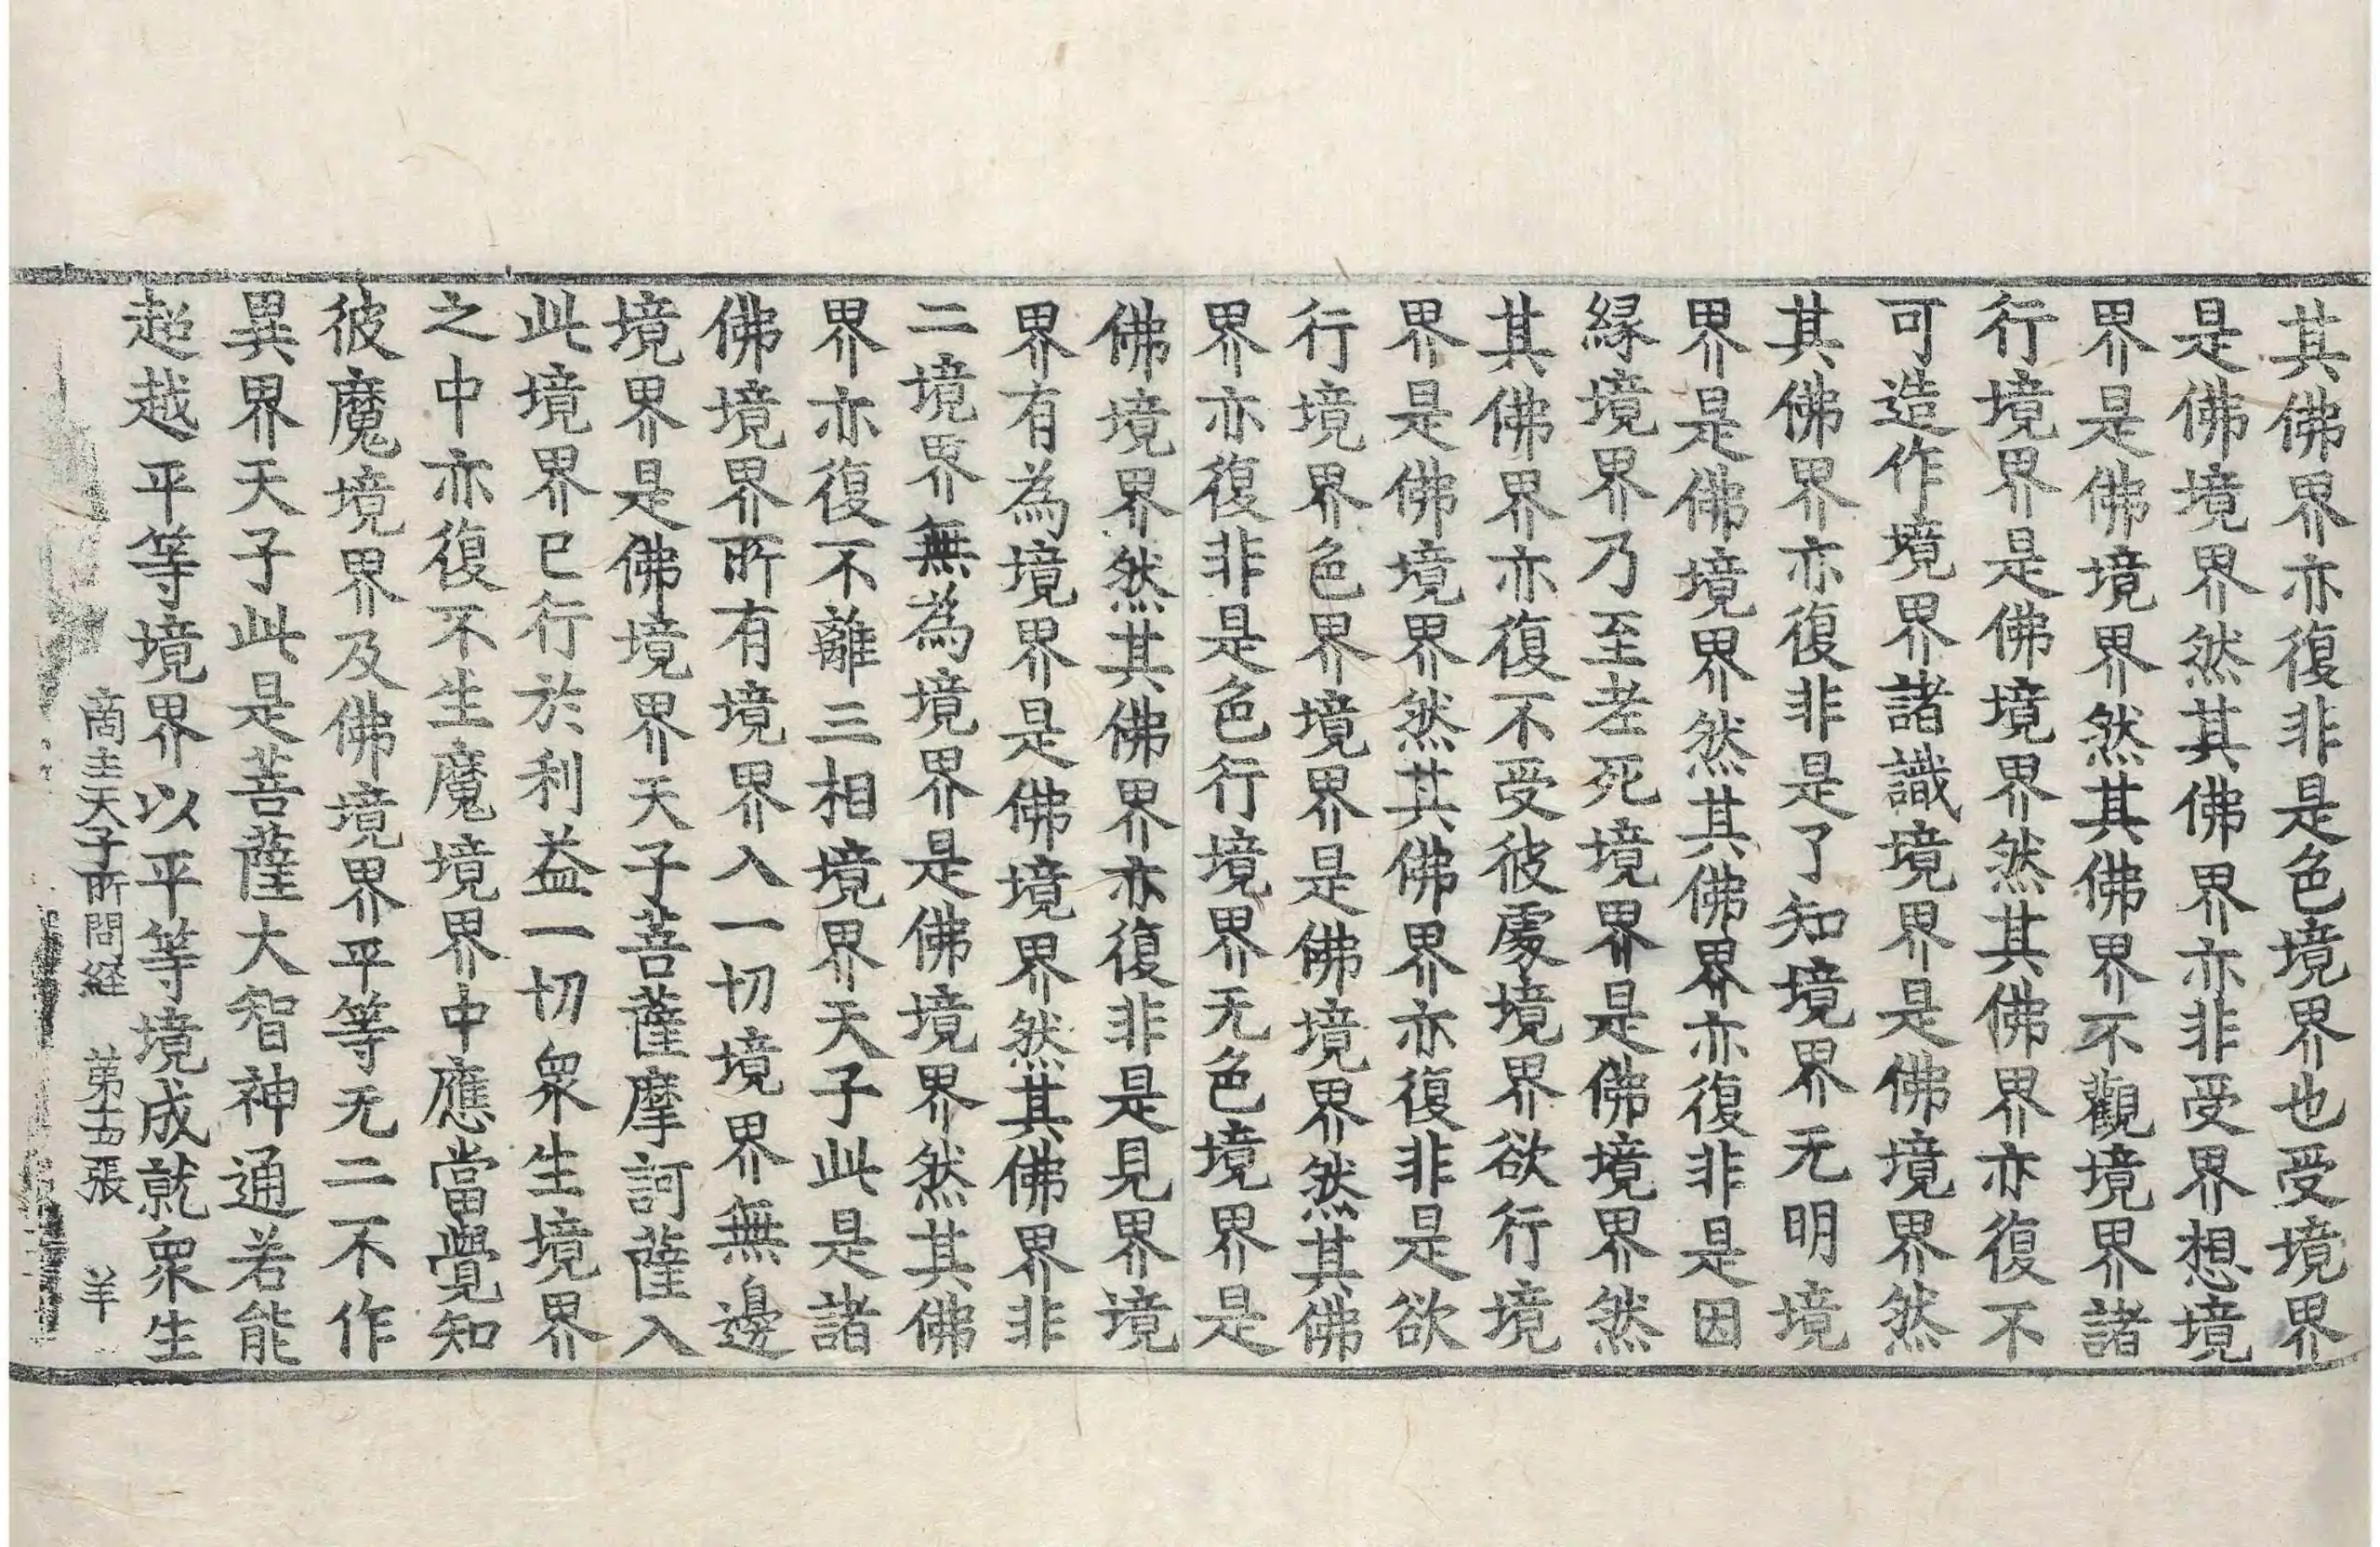 其佛界亦復非是色境界也受境界
是佛境界然其佛界亦非受界想境
界是佛境界然其佛界不觀境界諸
行境界是佛境界然其佛界亦復不
可造作境界諸識境界是佛境界然
其佛界亦復非是了知境界无明境
界是佛境界然其佛界亦復非是因
緣境界乃至老死境界是佛境界然
其佛界亦復不受彼處境界欲行境
界是佛境界然其佛界亦復非是欲
行境界色界境界是佛境界然其佛
界亦復非是色行境界无色境界是
佛境界然其佛界亦復非是見界境
界有為境界是佛境界然其佛界非
二境界無為境界是佛境界然其佛
界亦復不離三相境界天子此是諸
佛境界所有境界入一切境界無邊
境界是佛境界天子菩薩摩訶薩入
此境界已行於利益一切眾生境界
之中亦復不生魔境界中應當覺知
彼魔境界及佛境界平等无二不作
異界天子此是菩薩大智神通若能
超越平等境界以平等境成就眾生
商主天子所問経 第十四張 羊